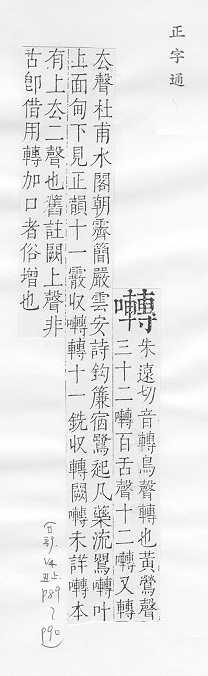 正字通
囀 朱遠切音轉鳥聲轉也黃鶯聲
三十二囀百舌聲十二囀又轉
厺聲杜甫水閣朝霽簡嚴雲安詩鈎簾宿鷺起凡藥流鶯囀叶
上面甸下見正韻十一霰收囀轉十一銑收轉闕囀未詳囀本
有上厺二聲也舊註闕上聲非
古卽借用轉加口者俗增也
V4 丑上 p89 ~ p90